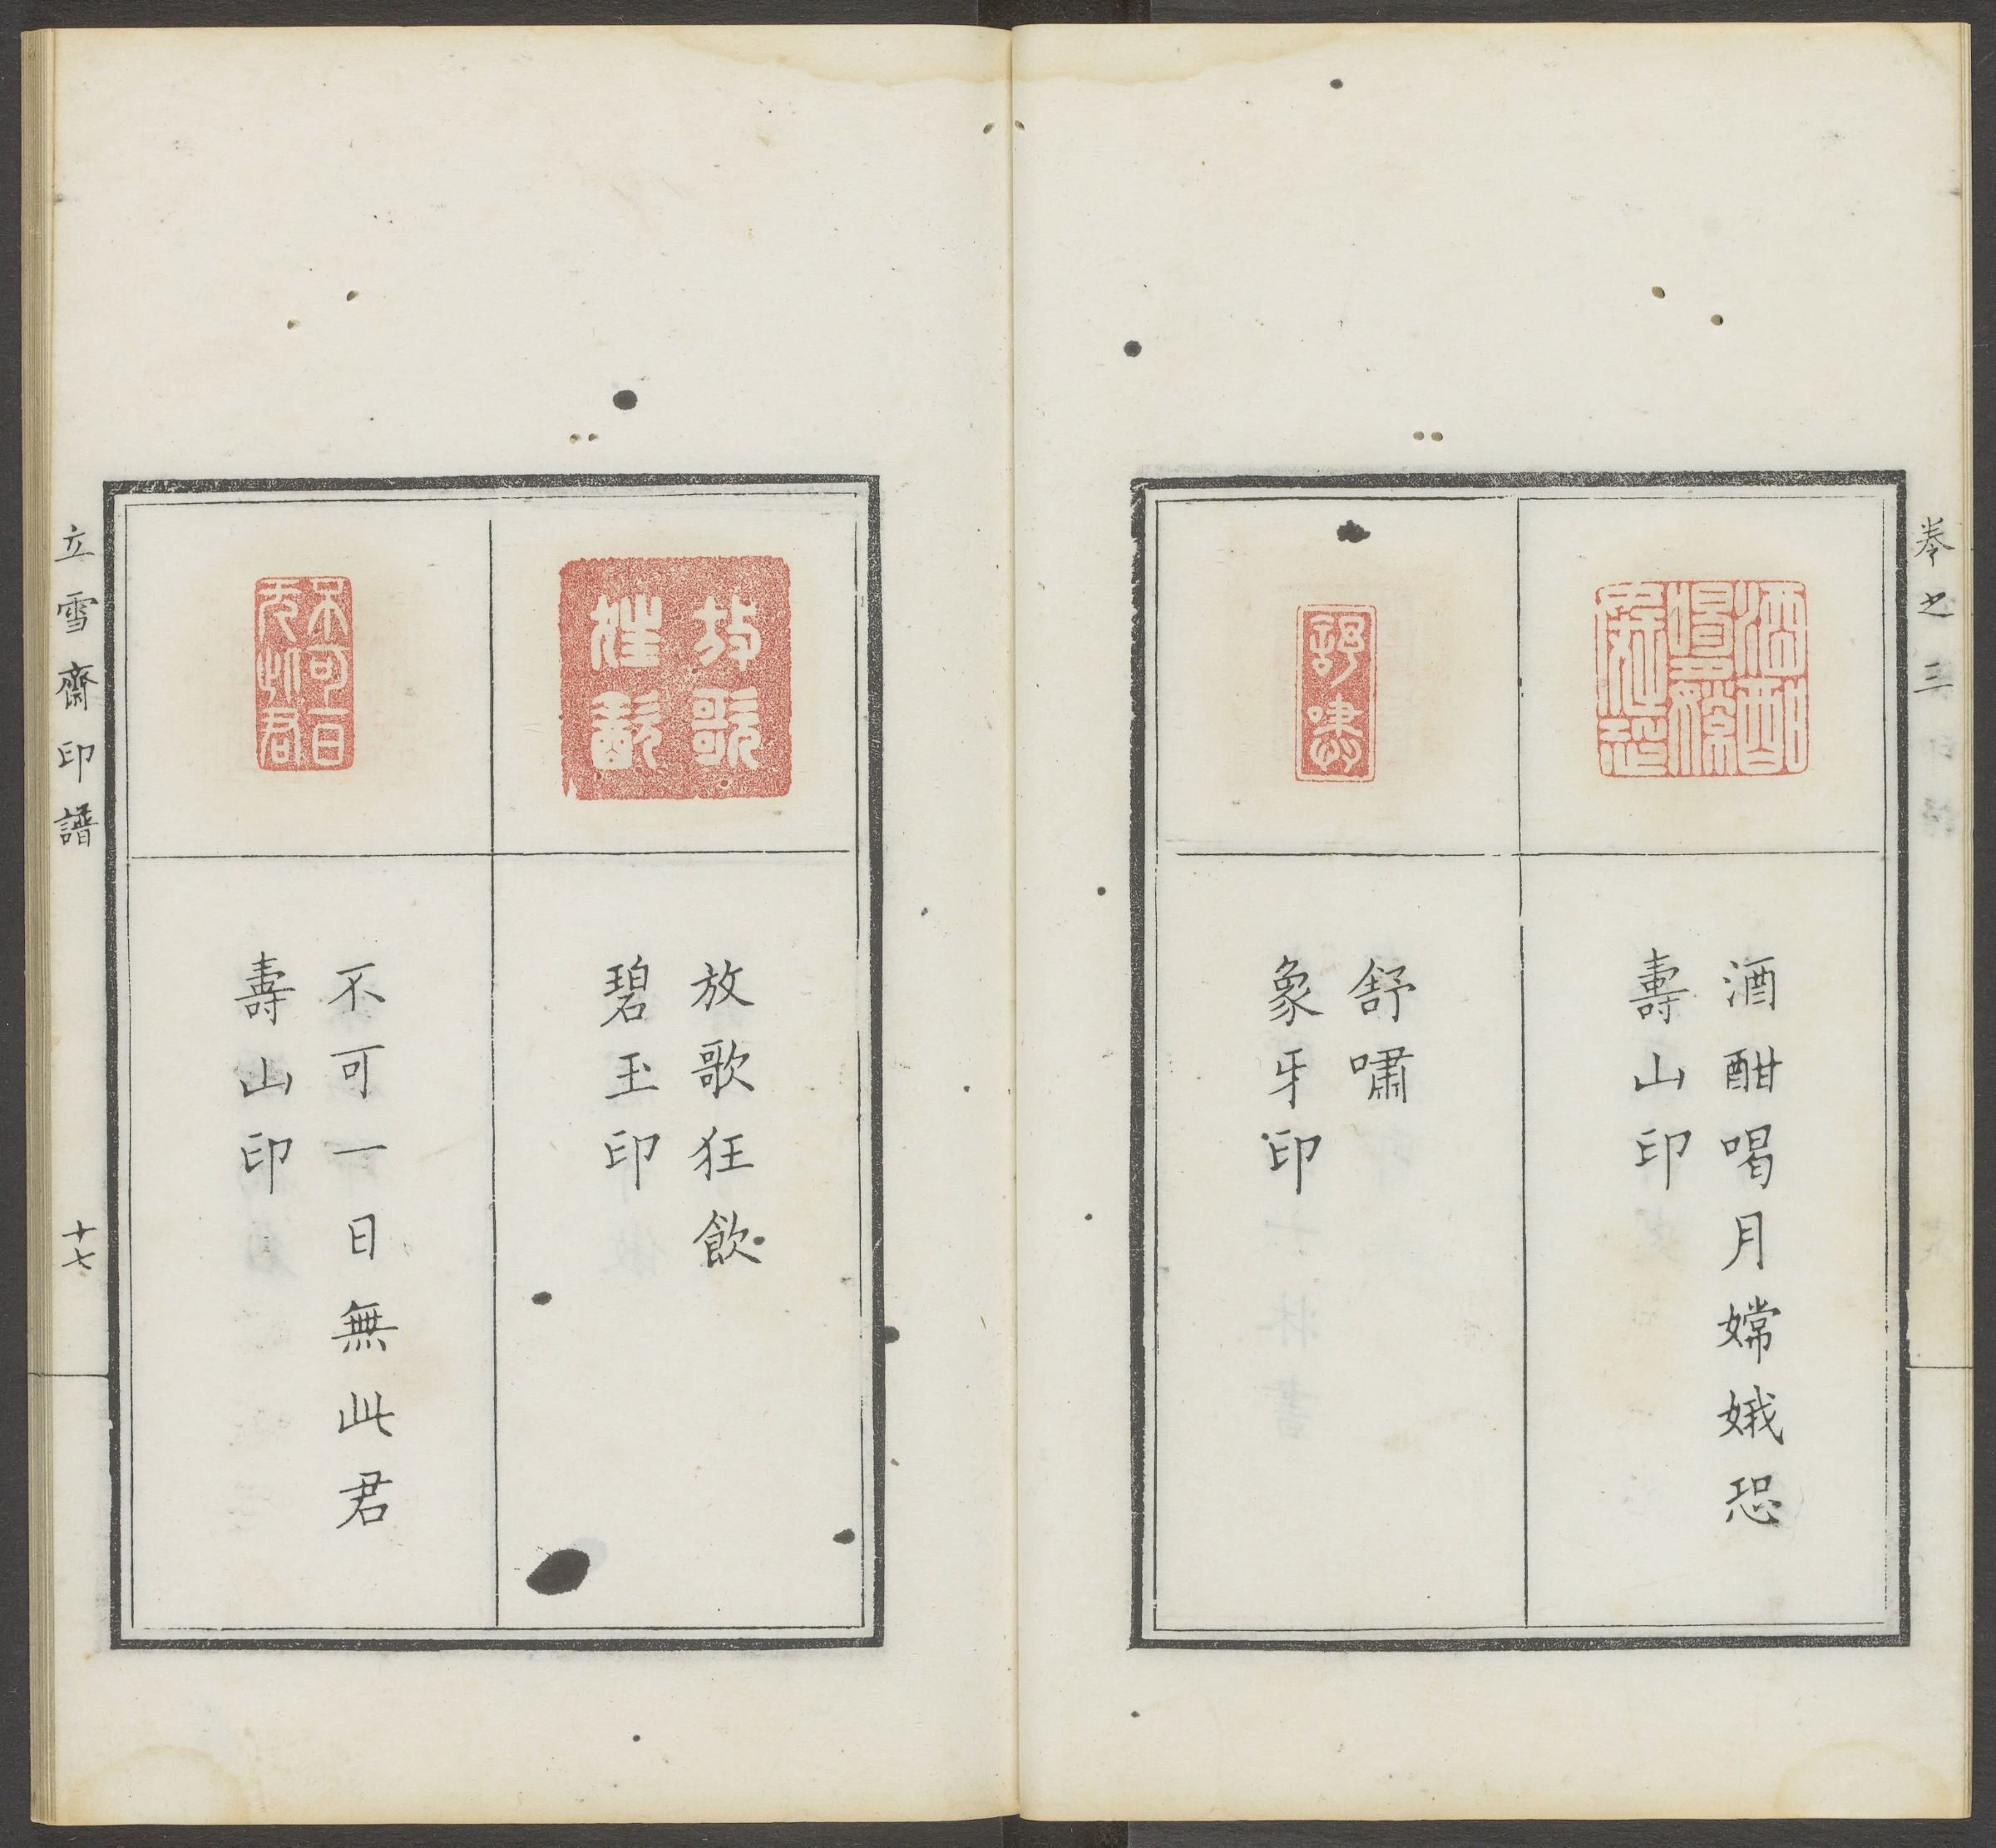 卷之三
酒酣喝月嫦娥恐
壽山印
舒嘯
象牙印
放歌狂飲
碧玉印
不可一日無此君
壽山印
立雪齋印譜
十七